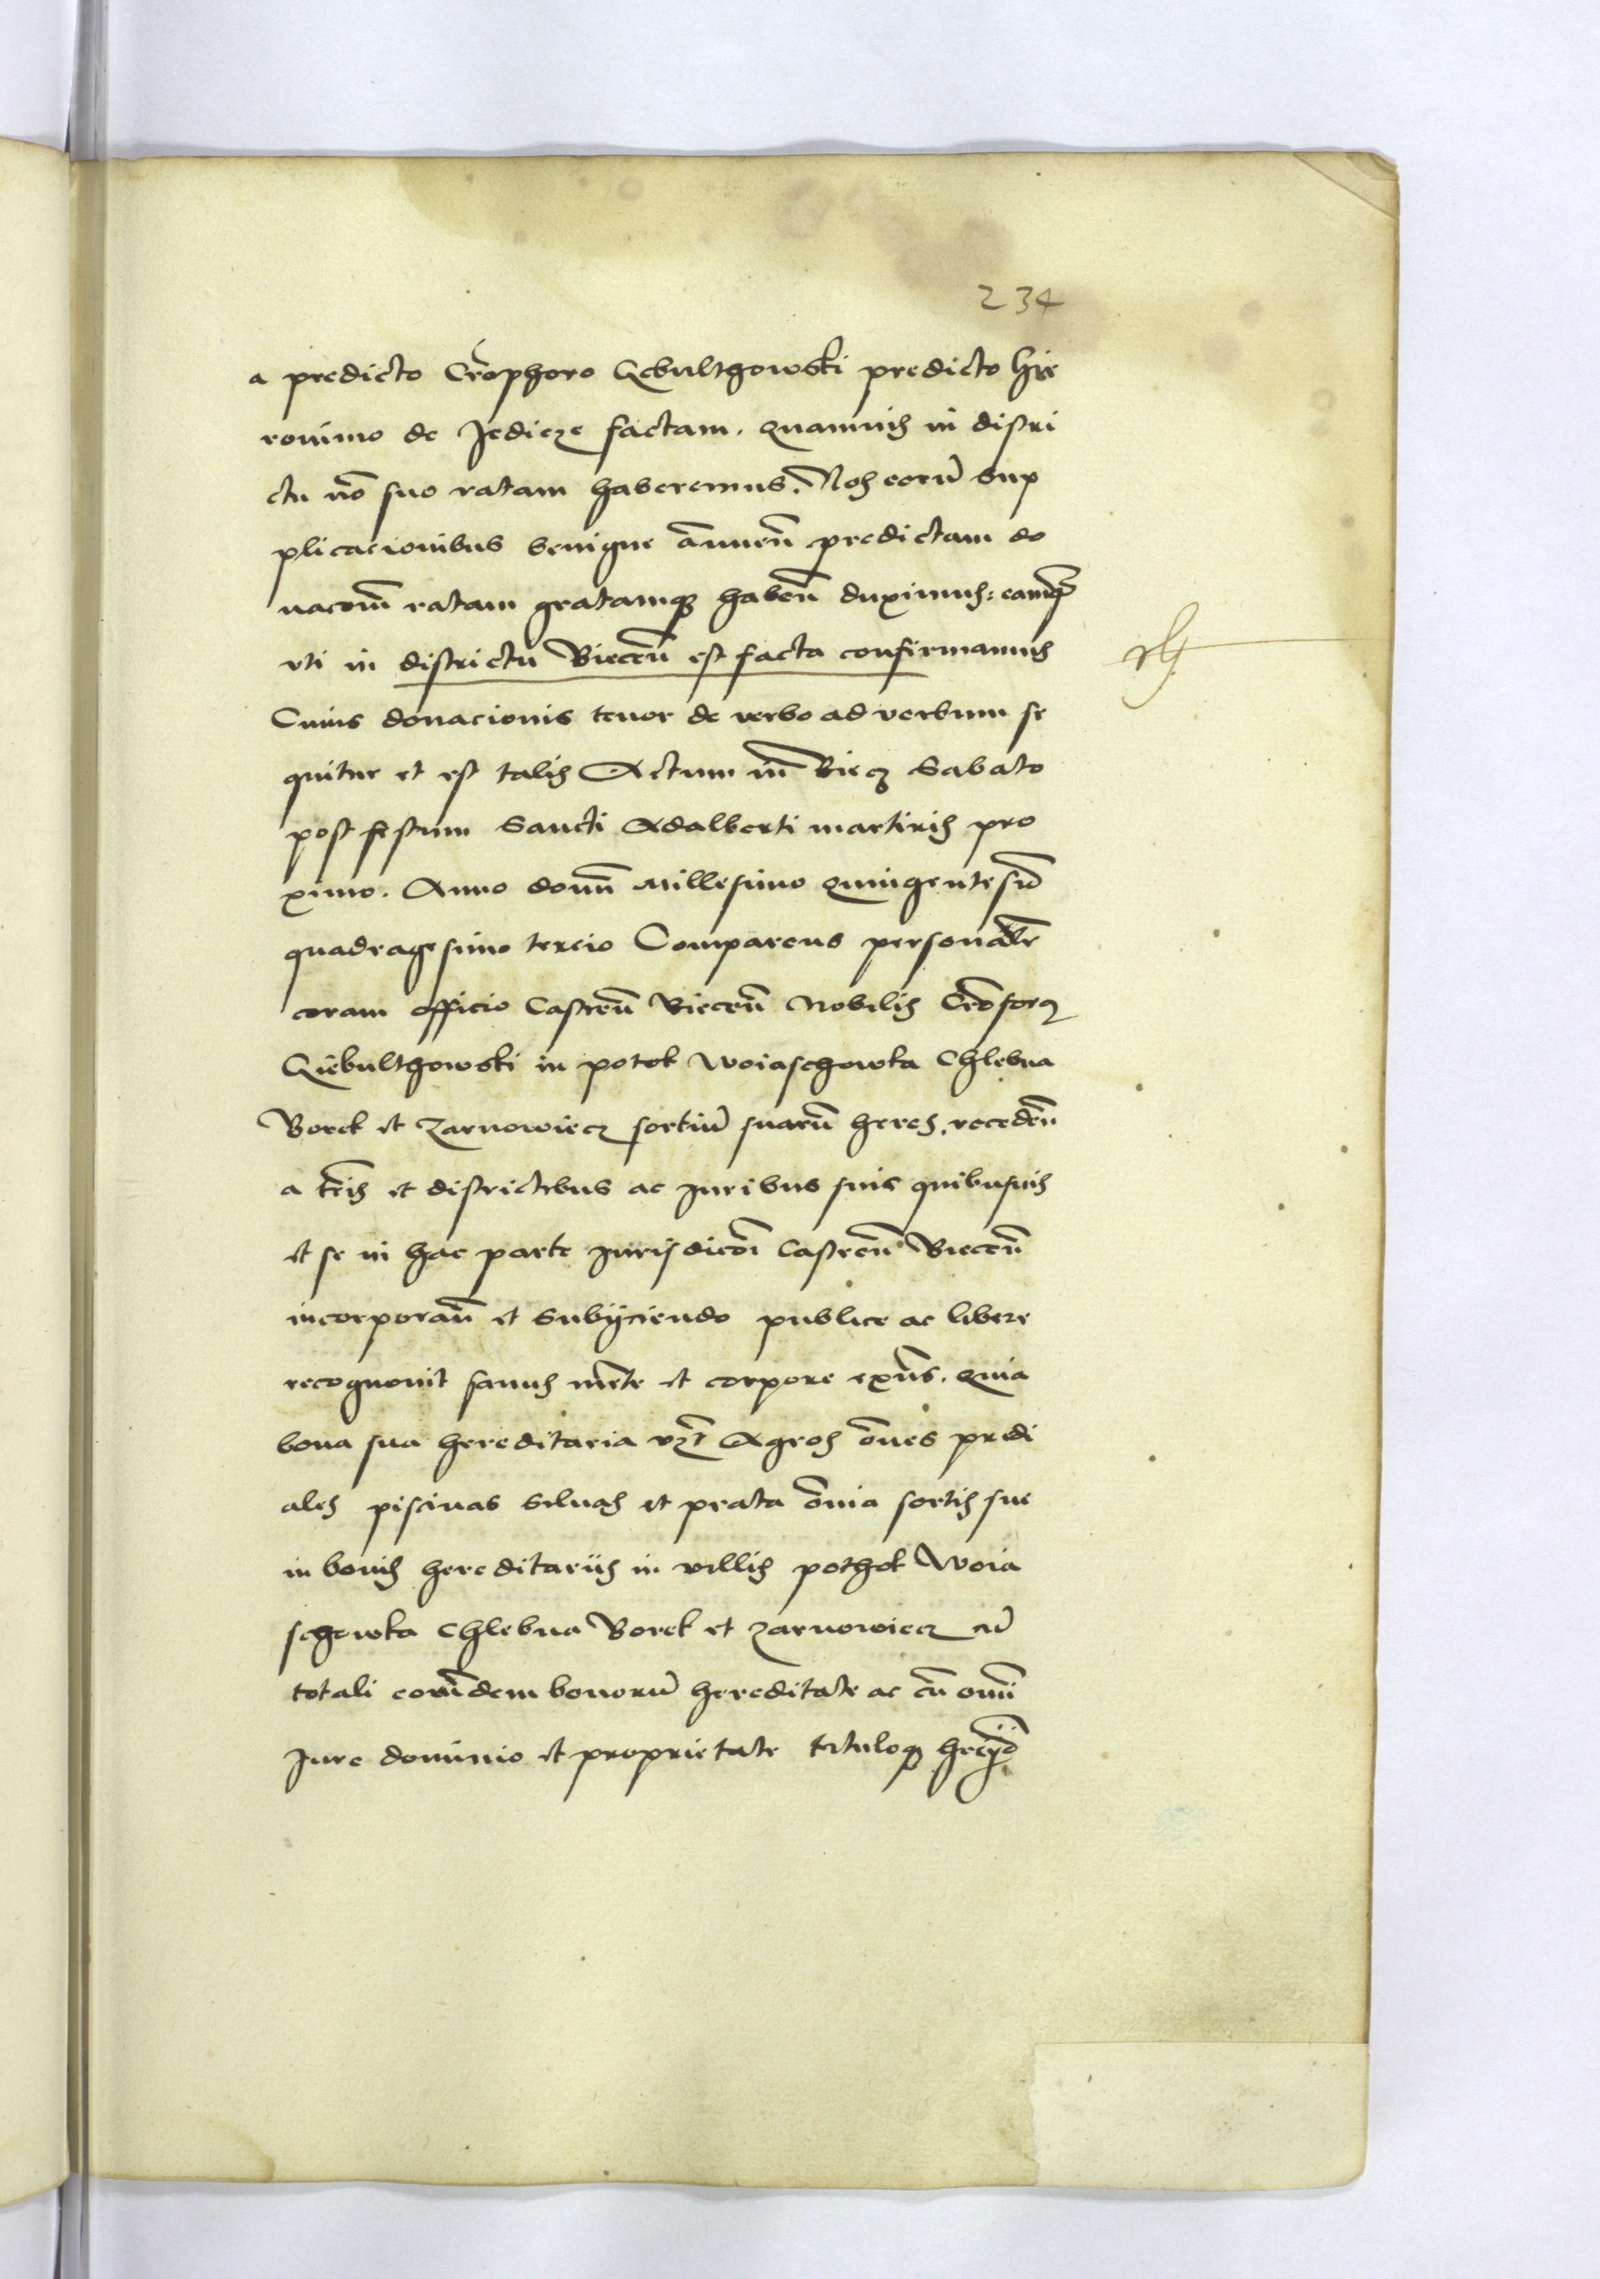 234
a predicto Crõphoro Gebulthowski predicto hie
ronimo de Jedlcze factam. quamuis in distri
ctu nõ suo ratam haberemus. Nos eorũ sup
plicacionibus benigne ãnueñ predictam do
nacoñi ratam gratamq habeñ duximus: eamq
vti in districtu Bieceñ est facta confirmamus
Cuius donacionis tenor de verbo ad verbum se
quitur et est talis Actum iñ Biecz Sabato
post festum Sancti Adalberti martiris pro
ximo. Anno domñ Millesimo quingentesiõ
quadragesimo tercio Comparens personalr̃
coram officio Castreñ Bieceñ Nobilis Crõforq
Giebulthowski in potok Woiaschowka Chlebna
Borek et Zarnowiecz sortiũ suarũ heres. recedeñ
a tr̃is et districtibus ac Juribus suis quibusuis
et se in hac parte Jurisdiccõi Castreñ Bieceñ
incorporañ et subijciendo publice ac libere
recognouit sanus mẽte et corpore exñs. quia
bona sua hereditaria vz̃t Agros õnes predi
ales piscinas siluas et prata õnia sortis sue
in bonis hereditariis in villis pothok Woia
schowka Chlebna Borek et Zarnowiecz cũ
totali eorũdem bonorũ hereditate ac cũ omñi
Jure dominio et proprietate tituloq